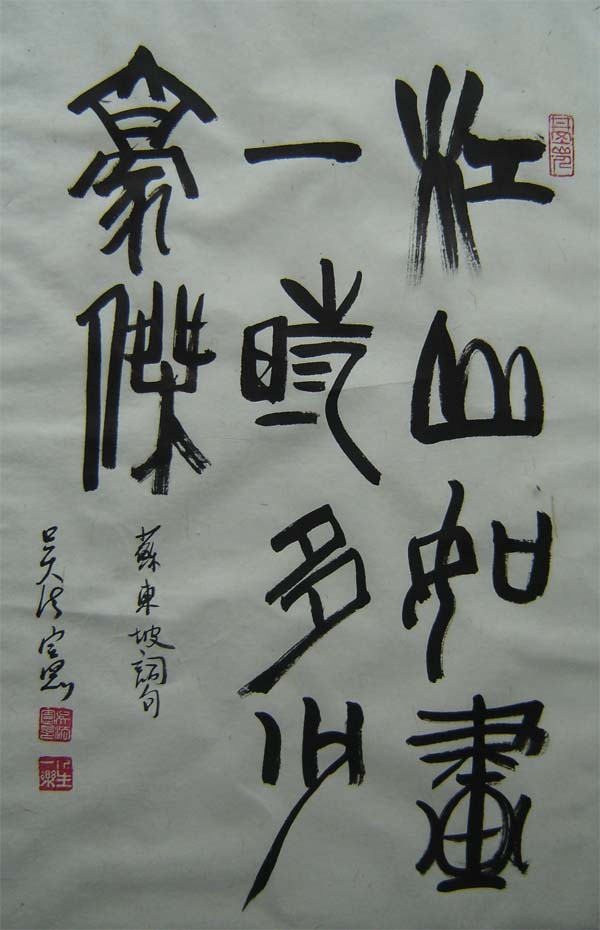 江山如畫
一時多少
豪傑
蘇東坡詞句
吳法憲書